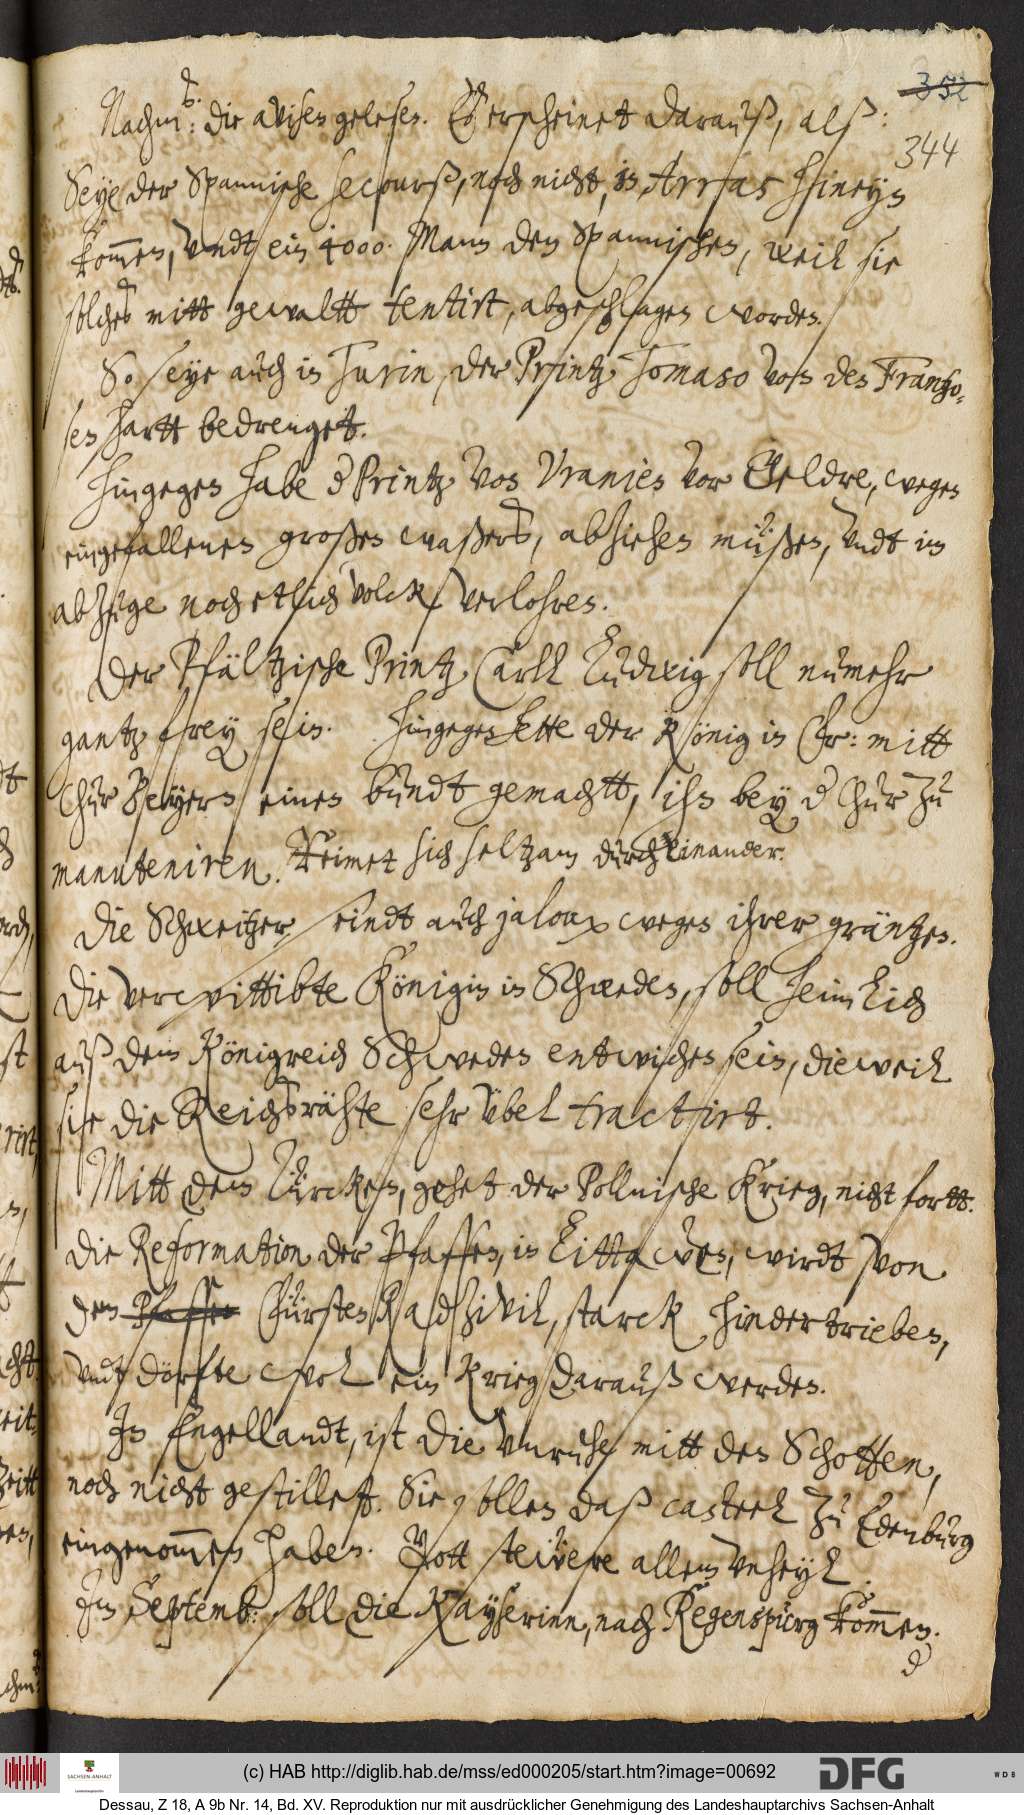 352
344
Nachm: die avisen gelesen. Es erscheinet darauß, alß:
Seye der Spannische secourß, noch nicht, in Arras hineyn
kom̄en, undt ein 4000. Mann den Spannischen, weil sie
solches mitt gewaltt tentirt, abgeschlagen worden.
So seye auch in Turin, der Printz Tomaso von den Frantzo-
sen hartt bedrenget.
Hingegen habe d Printz von Uranien vor Geldre, wegen
eingefallenen großen waßers, abziehen müßen, undt im
abzuge noch etlich volck verlohren.
Der Pfältzische Printz Carll Ludwig soll numehr
gantz frey sein. Hingegen hette der König in Fr: mitt
Chur Beyern einen bundt gemachtt, ihn bey d Chur zu
manuteniren. Reimet sich seltzam durcheinander.
Die Schweitzer seindt auch jaloux wegen ihrer gräntzen.
Die verwittibte Königin in Schweden, soll heimlich
auß dem Königreich Schweden entwichen sein, dieweil
sie die Reichsrähte sehr übel tractirt.
Mitt dem Türcken, gehet der Pollnische Krieg, nicht fortt.
Die Reformation der Pfaffen, in Littawen, wirdt von
den Pfaffen Fürsten Radzivil, starck hindertrieben,
undt dörfte wol ein Krieg darauß werden.
In Engellandt, ist die unruhe mitt den Schotten,
noch nicht gestillett. Sie sollen daß casteel zu Edenburg
eingenom̄en haben. Gott steüere allem unheyl.
Im Septemb: soll die Kayserinn, nach Regenspurg kom̄en.
d
(c) HAB http://diglib.hab.de/mss/ed000205/start.htm?image=00692
SACHSEN-ANHALT
DFG
WDB
Dessau, Z 18, A 9b Nr. 14, Bd. XV. Reproduktion nur mit ausdrücklicher Genehmigung des Landeshauptarchivs Sachsen-Anhalt